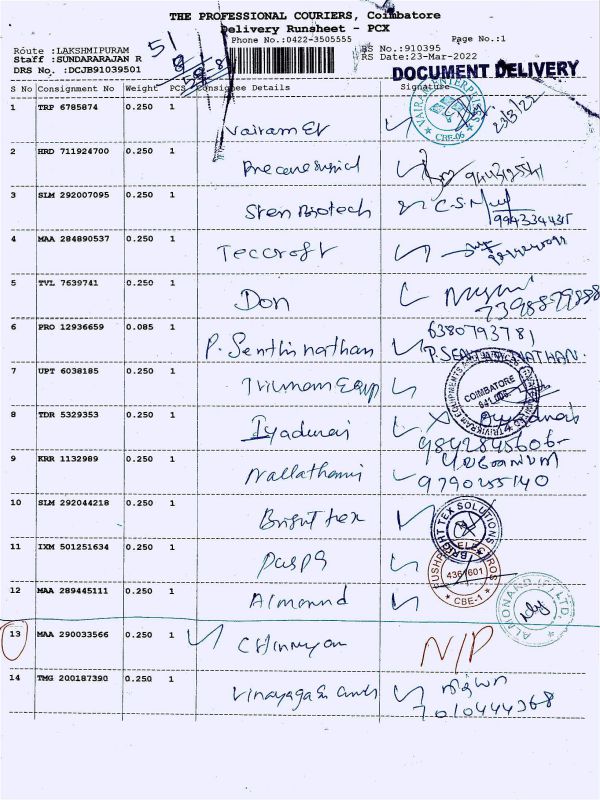 THE PROFESSIONAL COURIERS, Coimbatore
Delivery Runsheet - PCX
Phone No.:0422-3505555 Page No.:1
Route :LAKSHMIPURAM RS No.:910395
Staff :SUNDARARAJAN R RS Date:23-Mar-2022
DRS No. :DCJB91039501
51
DOCUMENT DELIVERY
S No Consignment No Weight PCS Consignee Details Signature
1 TRP 6785874 0.250 1 Vairam Et
VAIRAM ENTERPRISES CBE-06 23/3/22
2 HRD 711924700 0.250 1
3 SLM 292007095 0.250 1 Sten Biotech C.S.
9943344315
4 MAA 284890537 0.250 1 Teccroft
5 TVL 7639741 0.250 1 Don
7398879888
6 PRO 12936659 0.085 1 P. Senthilnathan 6380793781
P.SENTHILNATHAN.
7 UPT 6038185 0.250 1
COIMBATORE
8 TDR 5329353 0.250 1 Iyadurai
9842845606
9 KRR 1132989 0.250 1 Nallathambi
9790255140
10 SLM 292044218 0.250 1 Bright tex
BRIGHT TEX SOLUTIONS
11 IXM 501251634 0.250 1
4361601 CBE-1
12 MAA 289445111 0.250 1 Almonnd
ALMONARD (P) LTD.
13 MAA 290033566 0.250 1 Chinnayan N/P
14 TMG 200187390 0.250 1
7010444368